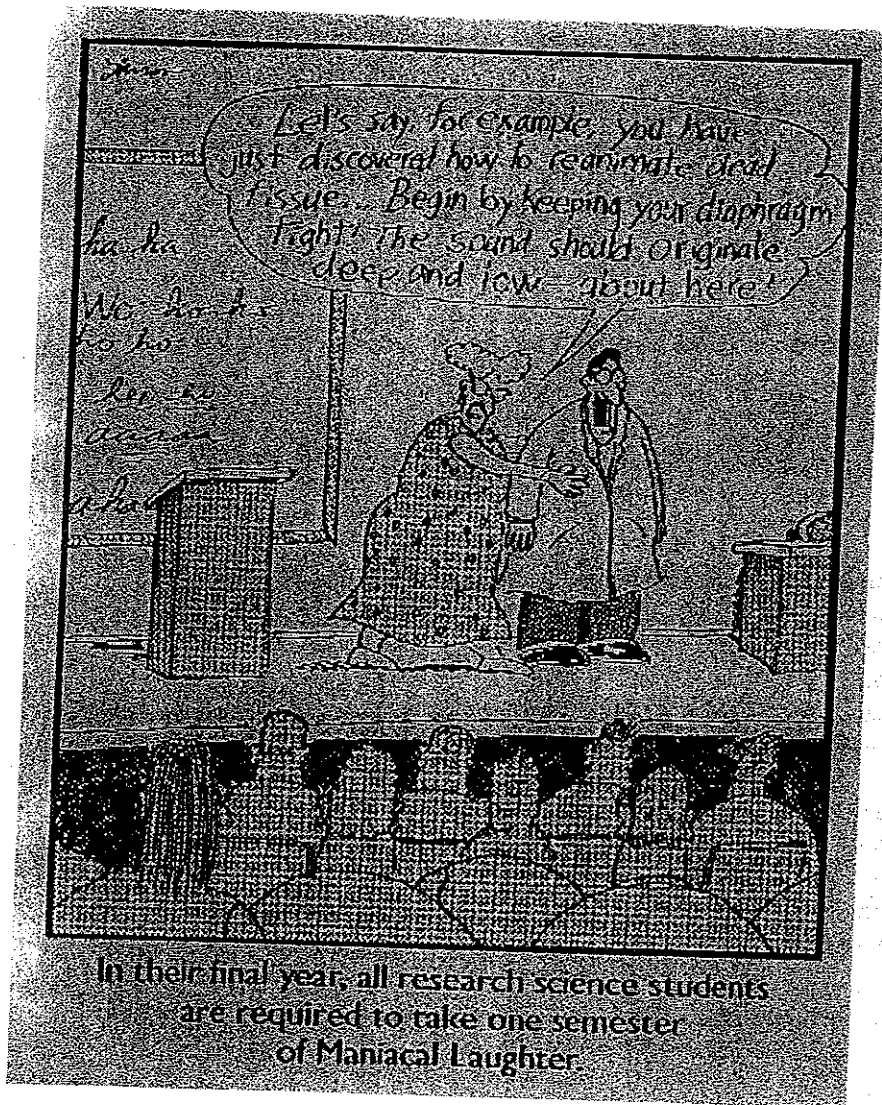 Let's say, for example, you have
just discovered how to reanimate dead
tissue... Begin by keeping your diaphragm
tight! The sound should originate
deep and low—about here!
ha ha
ho ho
In their final year, all research science students
are required to take one semester
of Maniacal Laughter.